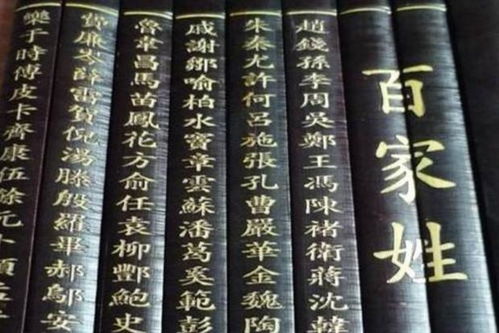 百家姓
趙錢孫李周吳鄭王馮陳褚衛蔣沈韓
朱秦尤許何呂施張孔曹嚴華金魏陶
戚謝鄒喻柏水竇章雲蘇潘葛奚範彭
魯韋昌馬苗鳳花方俞任袁柳酆鮑史
費廉岑薛雷賀倪湯滕殷羅畢郝鄔安
樂于時傅皮卡齊康伍餘元卜顧孟